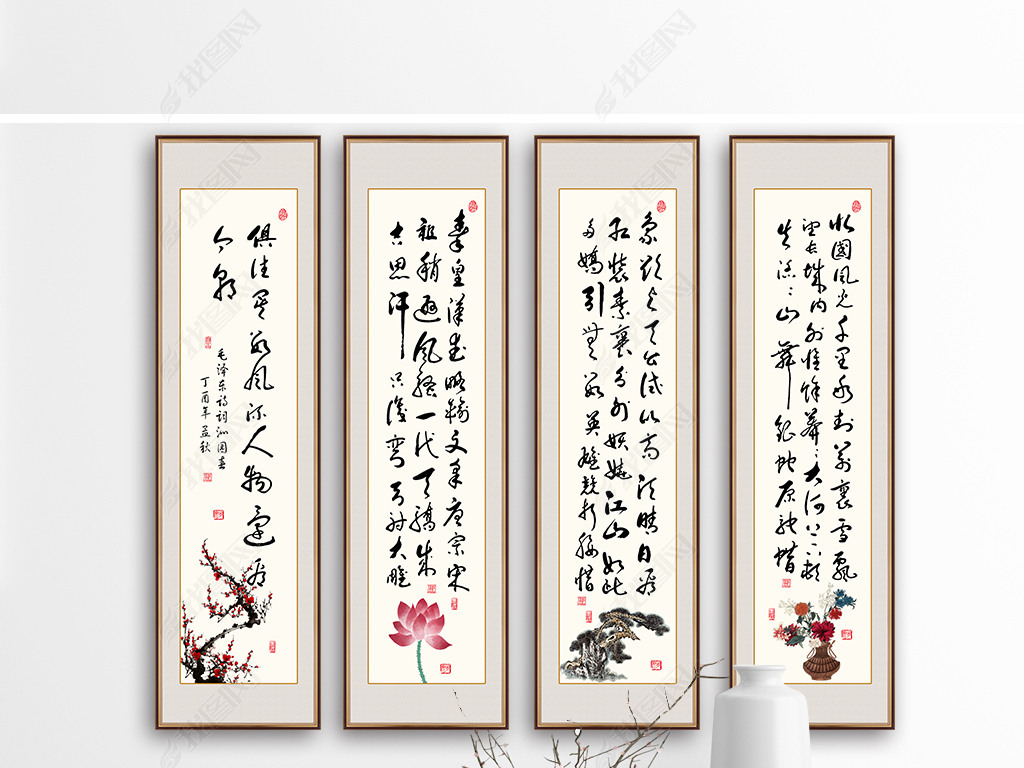 北國風光千里冰封萬裏雪飄
望长城内外惟馀莽莽大河上下顿
失滔滔山舞銀蛇原馳蜡
象欲与天公试比高须晴日看
红装素裹分外妖娆江山如此
多嬌引無數英雄競折腰惜
秦皇漢武略輸文采唐宗宋
祖稍遜風騷一代天驕成
吉思汗只識彎弓射大雕
俱往矣數風流人物還看
今朝
毛泽东诗词沁园春
丁酉年孟秋